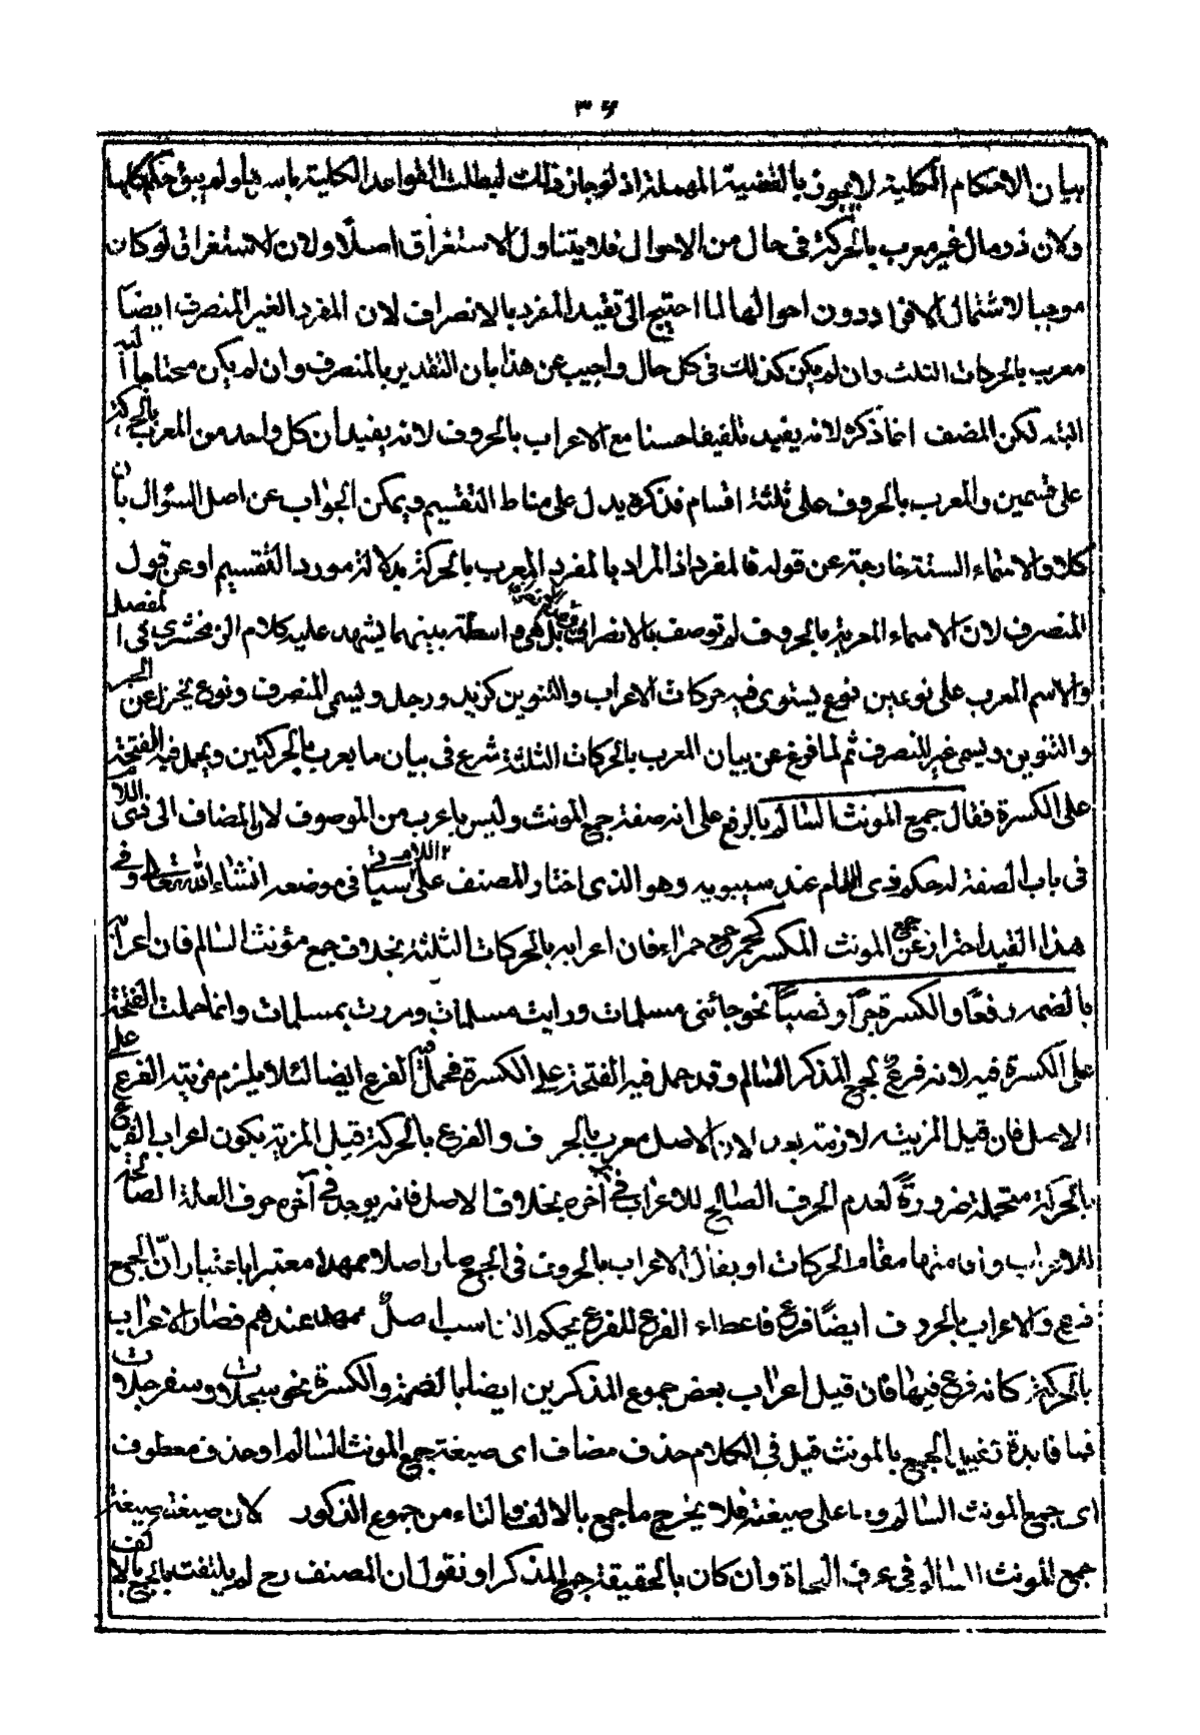 ٣٦
بيان الاحكام الكلية لا يجوز بالقضية المهملة اذ لو جاز ذلك لبطلت القواعد الكلية باسرها ولم يبق حكم كليا
ولان ذو مال غير معرب بالحركة فى حال من الاحوال فلا يتناول الاستغراق اصلًا ولان الاستغراق لو كان
موجبا لاشتمال الافراد دون احوالها لما احتيج الى تقييد المفرد بالانصراف لان المفرد الغير المنصرف ايضًا
معرب بالحركات الثلث وان لم يكن كذلك فى كل حال واجيب عن هذا بان التقدير بالمنصرف وان لم يكن محتاجا اليه
البتة لكن المصنف انما ذكره لانه يفيد تلفيفا حسنا مع الاعراب بالحروف لانه يفيد ان كل واحد من المعرب بالحركة
على قسمين والمعرب بالحروف على ثلثة اقسام فذكره يدل على مناط التقسيم ويمكن الجواب عن اصل السؤال بان
كلا والاسماء الستة خارجة عن قوله فالمفرد اذ المراد بالمفرد المعرب بالحركة بدلالة مورد التقسيم او عن قول
المنصرف لان الاسماء المعربة بالحروف لم توصف بالانصراف بل هى واسطة بينهما يشهد عليه كلام الزمخشرى فى المفصل
والاسم المعرب على نوعين نوع يستوى فيه حركات الاعراب والتنوين كزيد ورجل ويسمى المنصرف ونوع يختزل عن الجر
والتنوين ويسمى غير المنصرف ثم لما فرغ عن بيان المعرب بالحركات الثلثة شرع فى بيان ما يعرب بالحركتين ويحمل فيه الفتحة
على الكسرة فقال جمع المونث السالم بالرفع على انه صفة جمع المونث وليس باعرب من الموصوف لان المضاف الى ذى اللام
فى باب الصفة له حكم ذى اللام عند سيبويه وهو الذى اختار المصنف على ما سيأتى فى موضعه انشاء الله تعالى وفى
هذا القيد احتراز عن جمع المونث المكسر كحمر جمع حمراء فان اعرابه بالحركات الثلثة بخلاف جمع مؤنث السالم فان اعرابه
بالضمة رفعًا والكسرة جرًا ونصبًا نحو جائنى مسلمات ورايت مسلمات ومررت بمسلمات وانما حملت الفتحة
على الكسرة فيه لانه فرع لجمع المذكر السالم وقد حمل فيه الفتحة على الكسرة فحمل فى الفرع ايضا لئلا يلزم مزية الفرع على
الاصل فان قيل المزية لازمة بعد لان الاصل معرب بالحروف والفرع بالحركة قيل المزية بكون اعراب الفرع
بالحركة متحملة ضرورةً لعدم الحرف الصالح للاعراب فى آخره بخلاف الاصل فانه يوجد فى آخره حرف العلة الصالحة
للاعراب واقامتها مقام الحركات او يقال الاعراب بالحروف فى الجمع صار اصلا ممهدا معتبرا باعتبار انّ الجمع
فرع والاعراب بالحروف ايضًا فرع فاعطاء الفرع للفرع بحكم التناسب اصلٌ ممهد عندهم فصار الاعراب
بالحركة كانه فرع فيها فان قيل اعراب بعض جموع المذكرين ايضا بالضمة والكسرة نحو سجلات وسفرجلات
فما فايدة تقييد الجمع بالمونث قيل فى الكلام حذف مضاف اى صيغة جمع المونث السالم او حذف معطوف
اى جمع المونث السالم وما على صيغته فلا يخرج ما جمع بالالف والتاء من جموع الذكور لان صيغته صيغة
جمع المونث السالم فى عرف النحاة وان كان بالحقيقة جمع المذكر او نقول ان المصنف رح لم يلتفت بالجمع بالالف